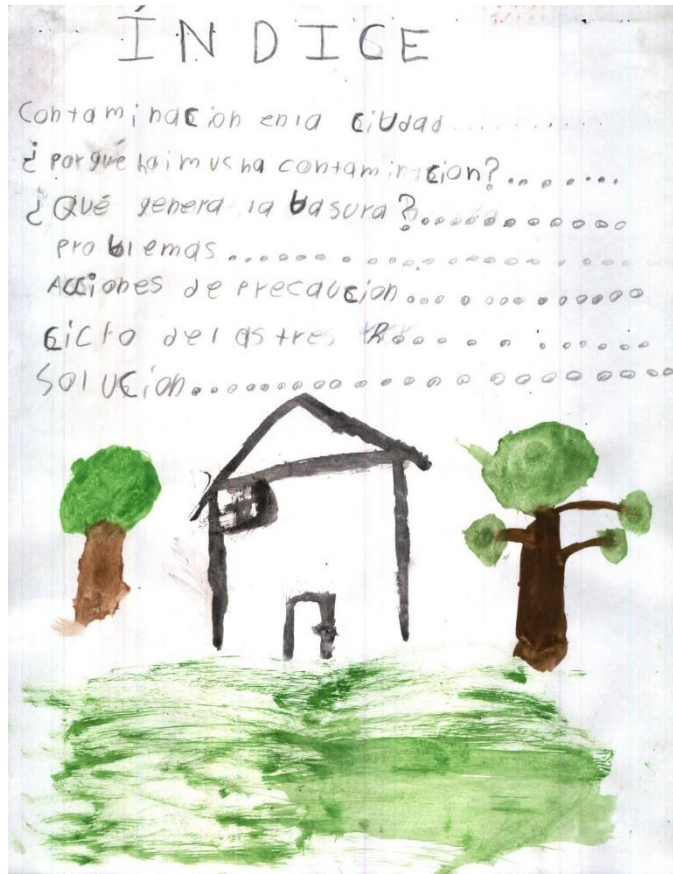 ÍNDICE
Contaminacion enla ciudad..........
¿porqué haimusha contaminacion?.......
¿Qué genera la basura?............
problemas....................
Acciones de Precaucion...............
ciclo delastres R...........
Solucion.........................